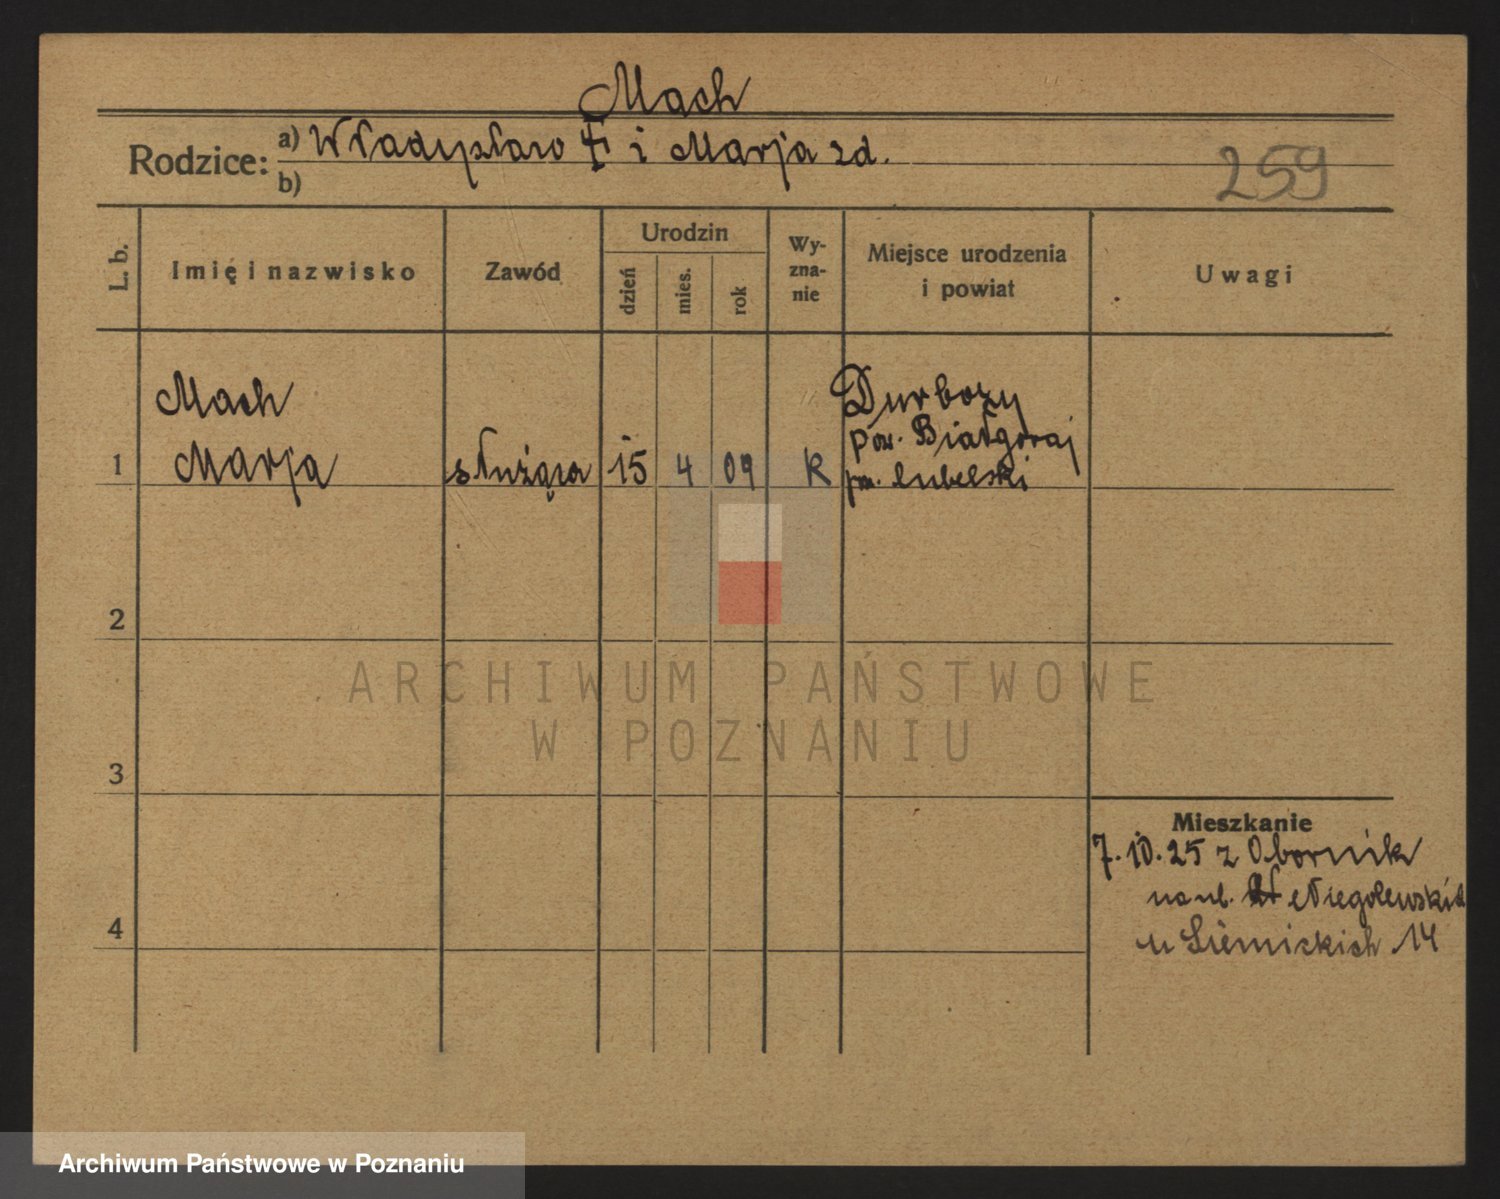 Mach
Rodzice:
a) Władysław i Marja zd.
b)
259
L. b.
Imię i nazwisko
Zawód
Urodzin
dzień
mies.
rok
Wy-
zna-
nie
Miejsce urodzenia
i powiat
Uwagi
Mach
Durbozy
pow. Białgoraj
1 Marja służąca 15 4 09 K
lubelski
2
ARCHIWUM PAŃSTWOWE
W POZNANIU
3
Mieszkanie
7.10.25 z Obornik
na ul. Niegolewskich
4
u Siemickich 14
Archiwum Państwowe w Poznaniu